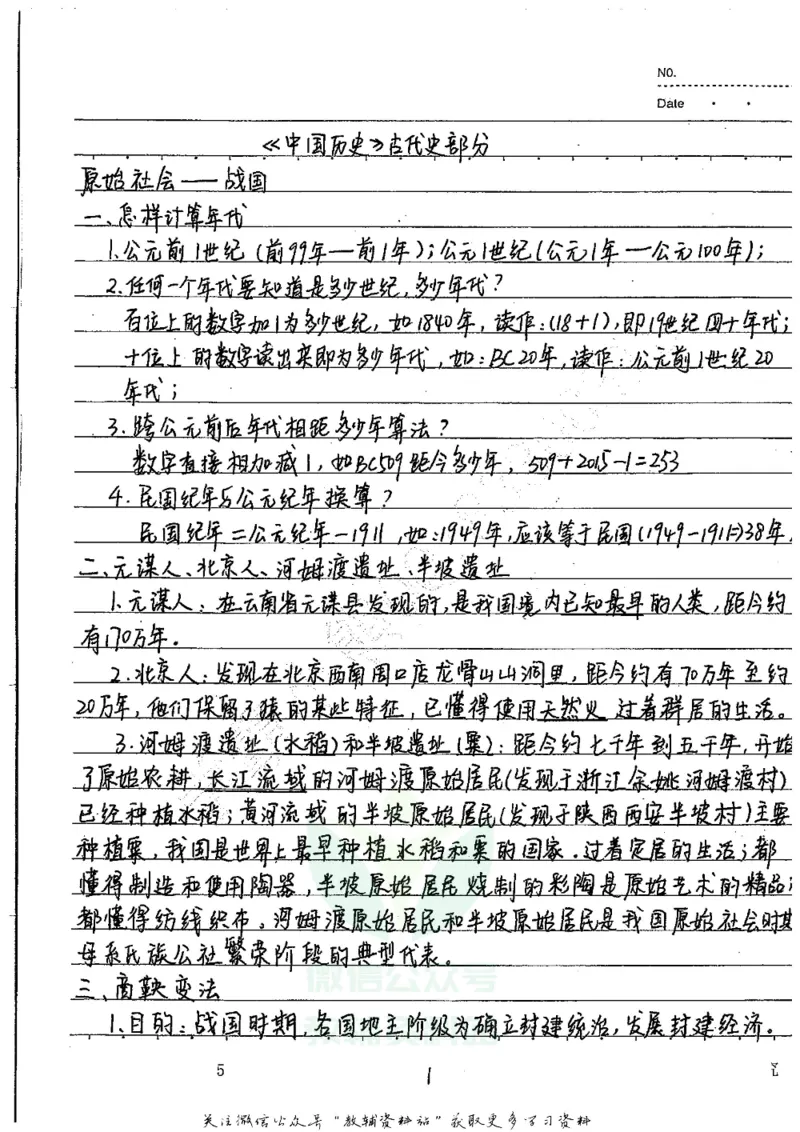 NO.
Date
《中国历史》古代史部分
原始社会——战国
一、怎样计算年代
1.公元前1世纪(前99年—前1年);公元1世纪(公元1年—公元100年);
2.任何一个年代要知道是多少世纪,多少年代?
百位上的数字加1为多少世纪,如1840年,读作:(18+1),即19世纪四十年代;
十位上的数字读出来即为多少年代,如:BC20年,读作:公元前1世纪20
年代;
3.跨公元前后年代相距多少年算法?
数字直接相加减1,如BC509距今多少年,509+2015-1=253
4.民国纪年与公元纪年换算?
民国纪年=公元纪年-1911,如:1949年,应该等于民国(1949-1911=)38年,
二、元谋人、北京人、河姆渡遗址、半坡遗址
1.元谋人:在云南省元谋县发现的,是我国境内已知最早的人类,距今约
有170万年。
2.北京人:发现在北京西南周口店龙骨山山洞里,距今约有70万年至约
20万年,他们保留了猿的某些特征,已懂得使用天然火,过着群居的生活。
3.河姆渡遗址(水稻)和半坡遗址(粟):距今约七千年到五千年,开始
了原始农耕,长江流域的河姆渡原始居民(发现于浙江余姚河姆渡村)
已经种植水稻;黄河流域的半坡原始居民(发现于陕西西安半坡村)主要
种植粟,我国是世界上最早种植水稻和粟的国家.过着定居的生活;都
懂得制造和使用陶器,半坡原始居民烧制的彩陶是原始艺术的精品;
都懂得纺线织布。河姆渡原始居民和半坡原始居民是我国原始社会时期
母系氏族公社繁荣阶段的典型代表。
微信公众号
三、商鞅变法
1.目的:战国时期,各国地主阶级为确立封建统治,发展封建经济。
教辅资料站
5
1
关注微信公众号"教辅资料站"获取更多学习资料